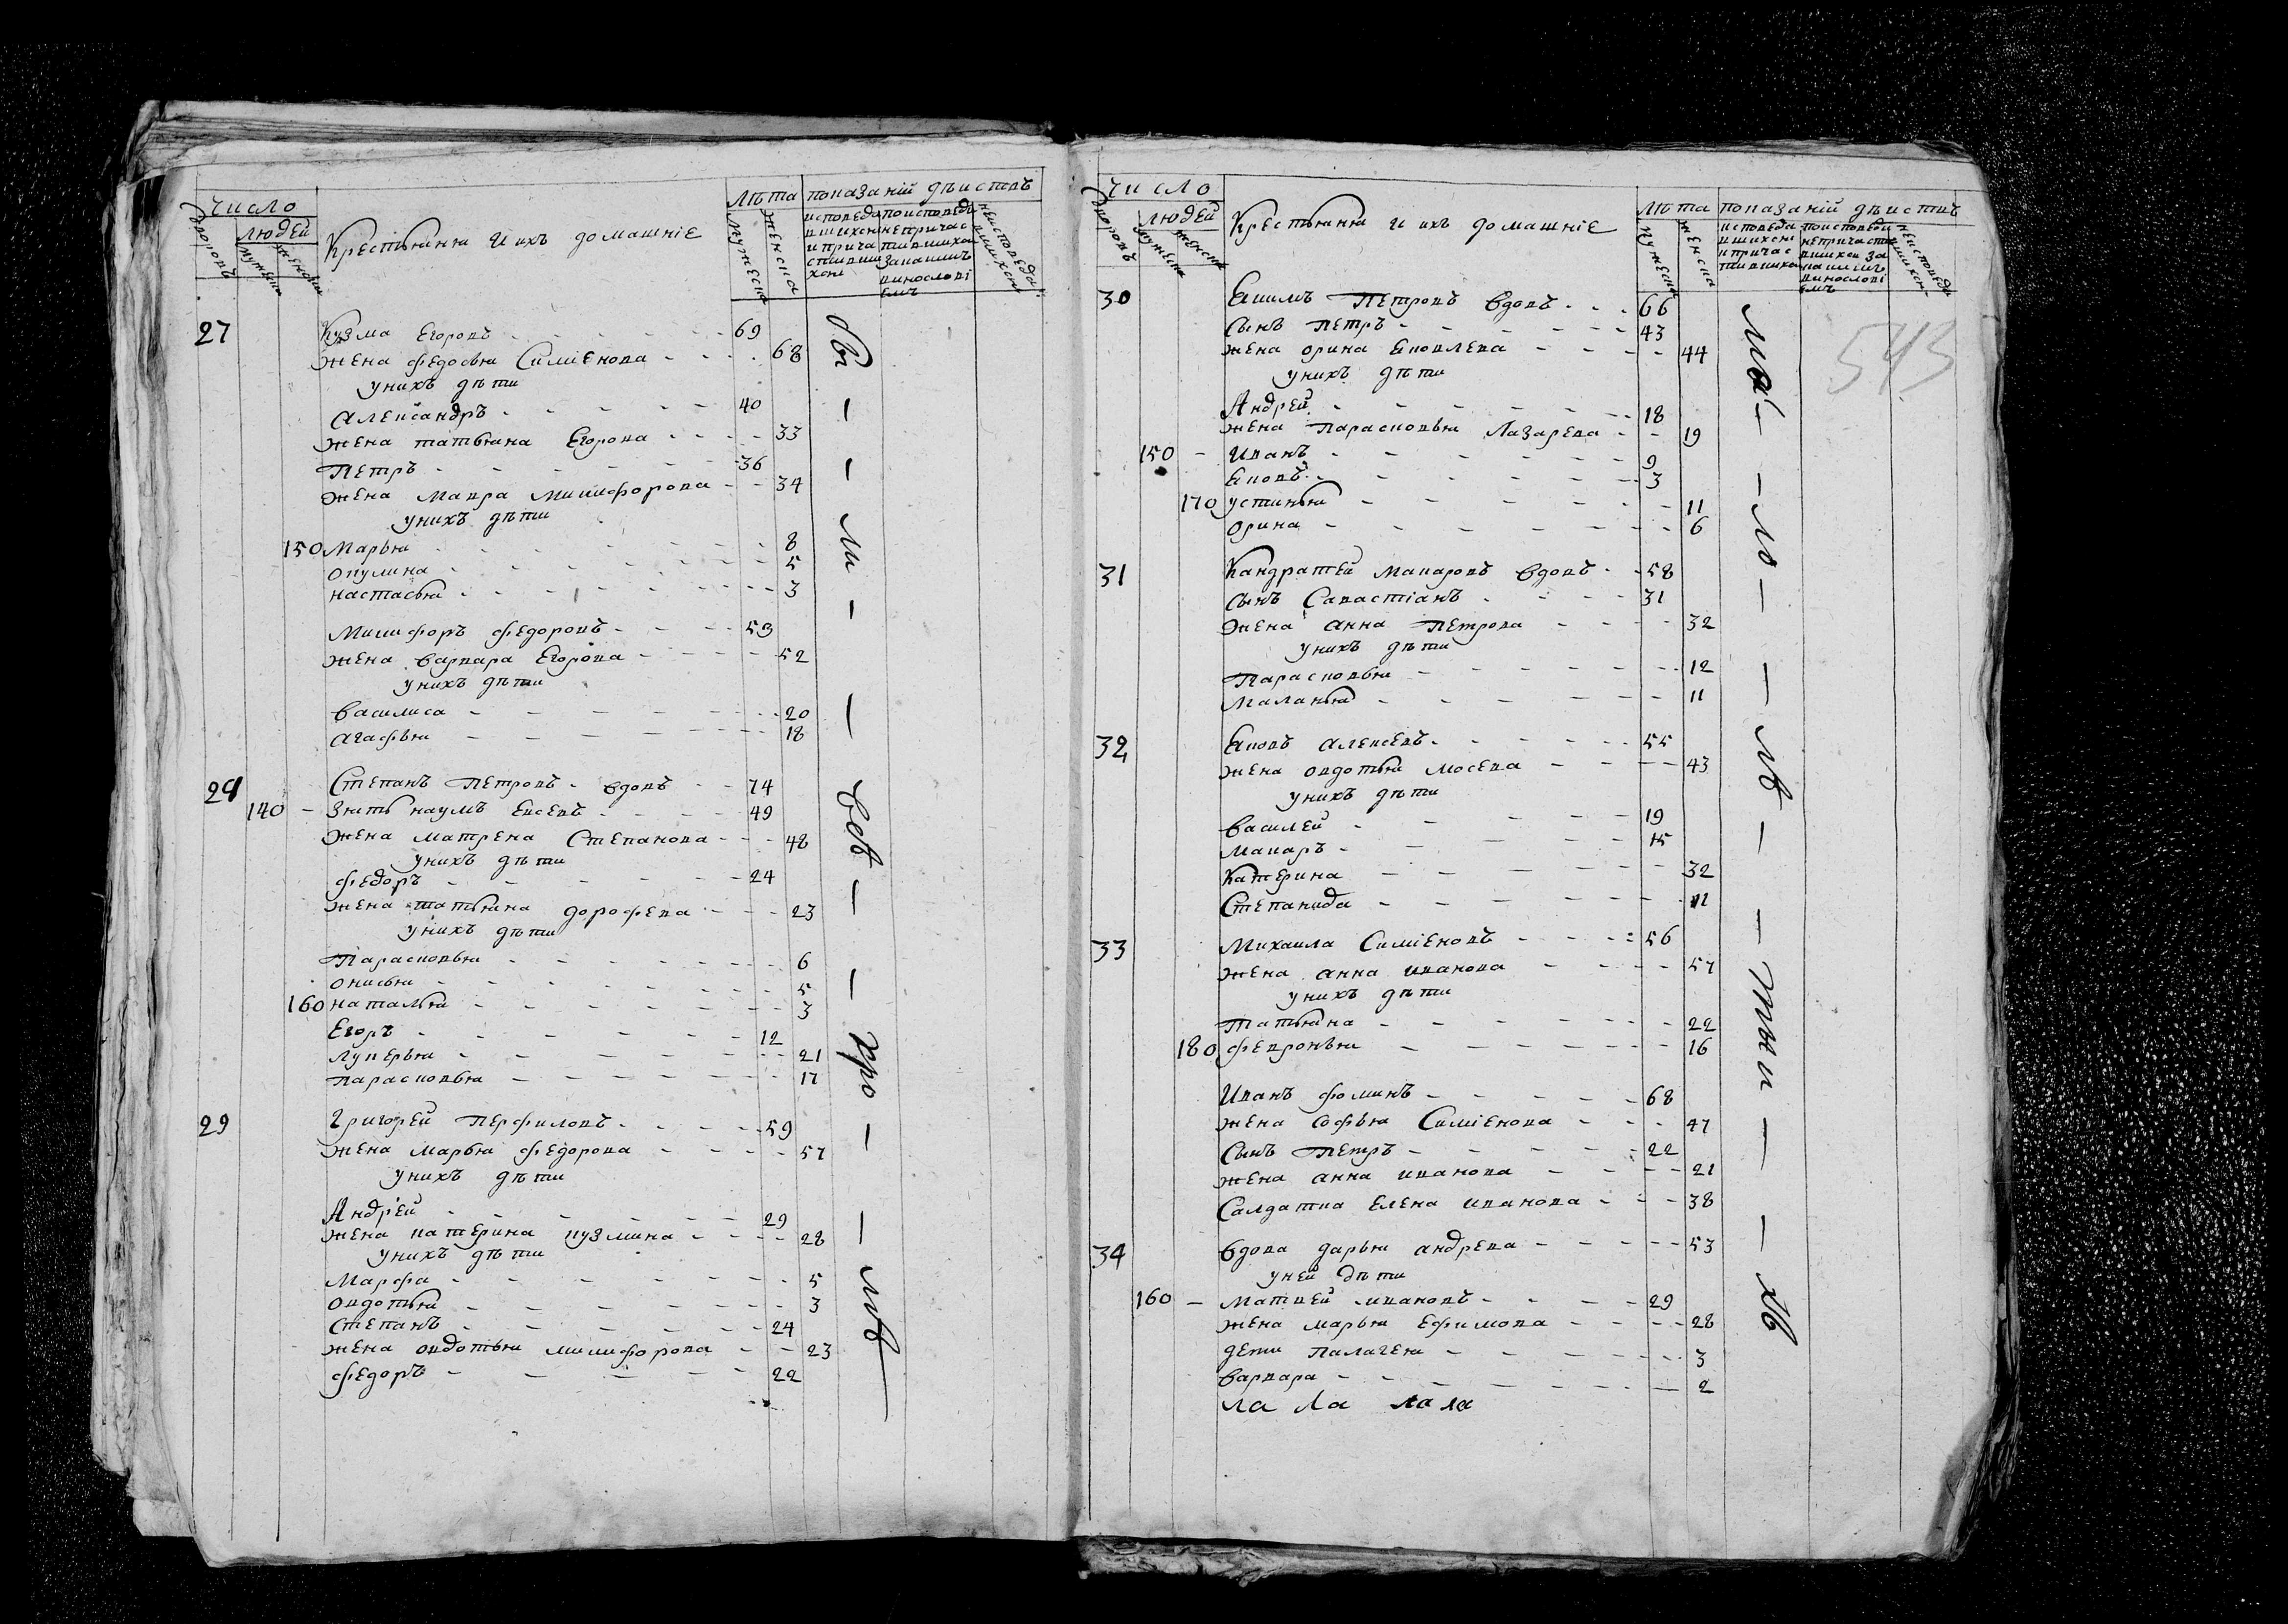 число
людей
дворовъ
мужеска
женска
Крестьяня и ихъ домашние
лѣта
мужеска
женска
показаній дѣиствъ
исповеда
вшихся
и прича
стивши
хся
по исповеди
не причас
тившихся
за каимъ
винословi
емъ
неисповеда
вшихся
27 Кузма Егоровъ 69
жена федосья Симiенова 68
у нихъ дѣти
Александръ 40
жена татьяна Егорова 33
Петръ 36
жена Мавра Микифорова 34
у нихъ дѣти
150 Марья 8
окулина 5
настасья 3
Микифоръ федоровъ 53
жена варвара Егорова 52
у нихъ дѣти
василиса 20
агафья 18
Степанъ Петровъ вдовъ 74
140 Зять наумъ Евсевъ 49
жена матрена Степанова 48
у нихъ дѣти
федоръ 24
жена татьяна дорофева 23
у нихъ дѣти
Парасковья 6
онисья 5
160 наталья 3
Егоръ 12
лукерья 21
парасковья 17
29 Григорей Перфиловъ 59
жена марья федорова 57
у нихъ дѣти
Андрей 29
жена катерина кузмина 28
у нихъ дѣти
Марфа 5
овдотья 3
Степанъ 24
жена овдотья микифорова 23
федоръ 22
бы
ли
всѣ
кро
мѣ
число
людей
дворовъ
мужеска
женска
Крестьяня и ихъ домашнiе
лѣта
мужеска
женска
показаній дѣиствъ
исповеда
вшихся
и причас
тившихся
по исповеди
не причасти
вшихся за
каимъ
винословi
емъ
неисповеда
вшихся
543
30 Екимъ Петровъ вдовъ 66
сынъ Петръ 43
жена орина Яковлева 44
у нихъ дѣти
Андрей 18
жена Парасковья Лазарева 19
150 Иванъ 9
Яковъ 3
170 устинья 11
орина 6
31 Кандратей макаровъ вдовъ 58
сынъ Савастiанъ 31
жена анна Петрова 32
у нихъ дѣти
Парасковья 12
Маланья 11
32 Яковъ алексевъ 55
жена овдотья мосева 43
у нихъ дѣти
василей 19
макаръ 15
Катерина 32
Степанида
33 Михаила Симiеновъ 56
жена анна иванова 57
у нихъ дѣти
Татьяна 22
180 февронья 16
Иванъ фоминъ 68
жена софья Симiенова 47
сынъ Петръ 22
жена анна иванова 21
Салдатка Елена иванова 38
34 вдова дарья андрева 53
у ней дѣти
160 матвей ивановъ 29
жена марья Ефимова 28
дети палагея 3
варвара 2
ла ла ла ла
ма
ло
лѣ
тны
хъ